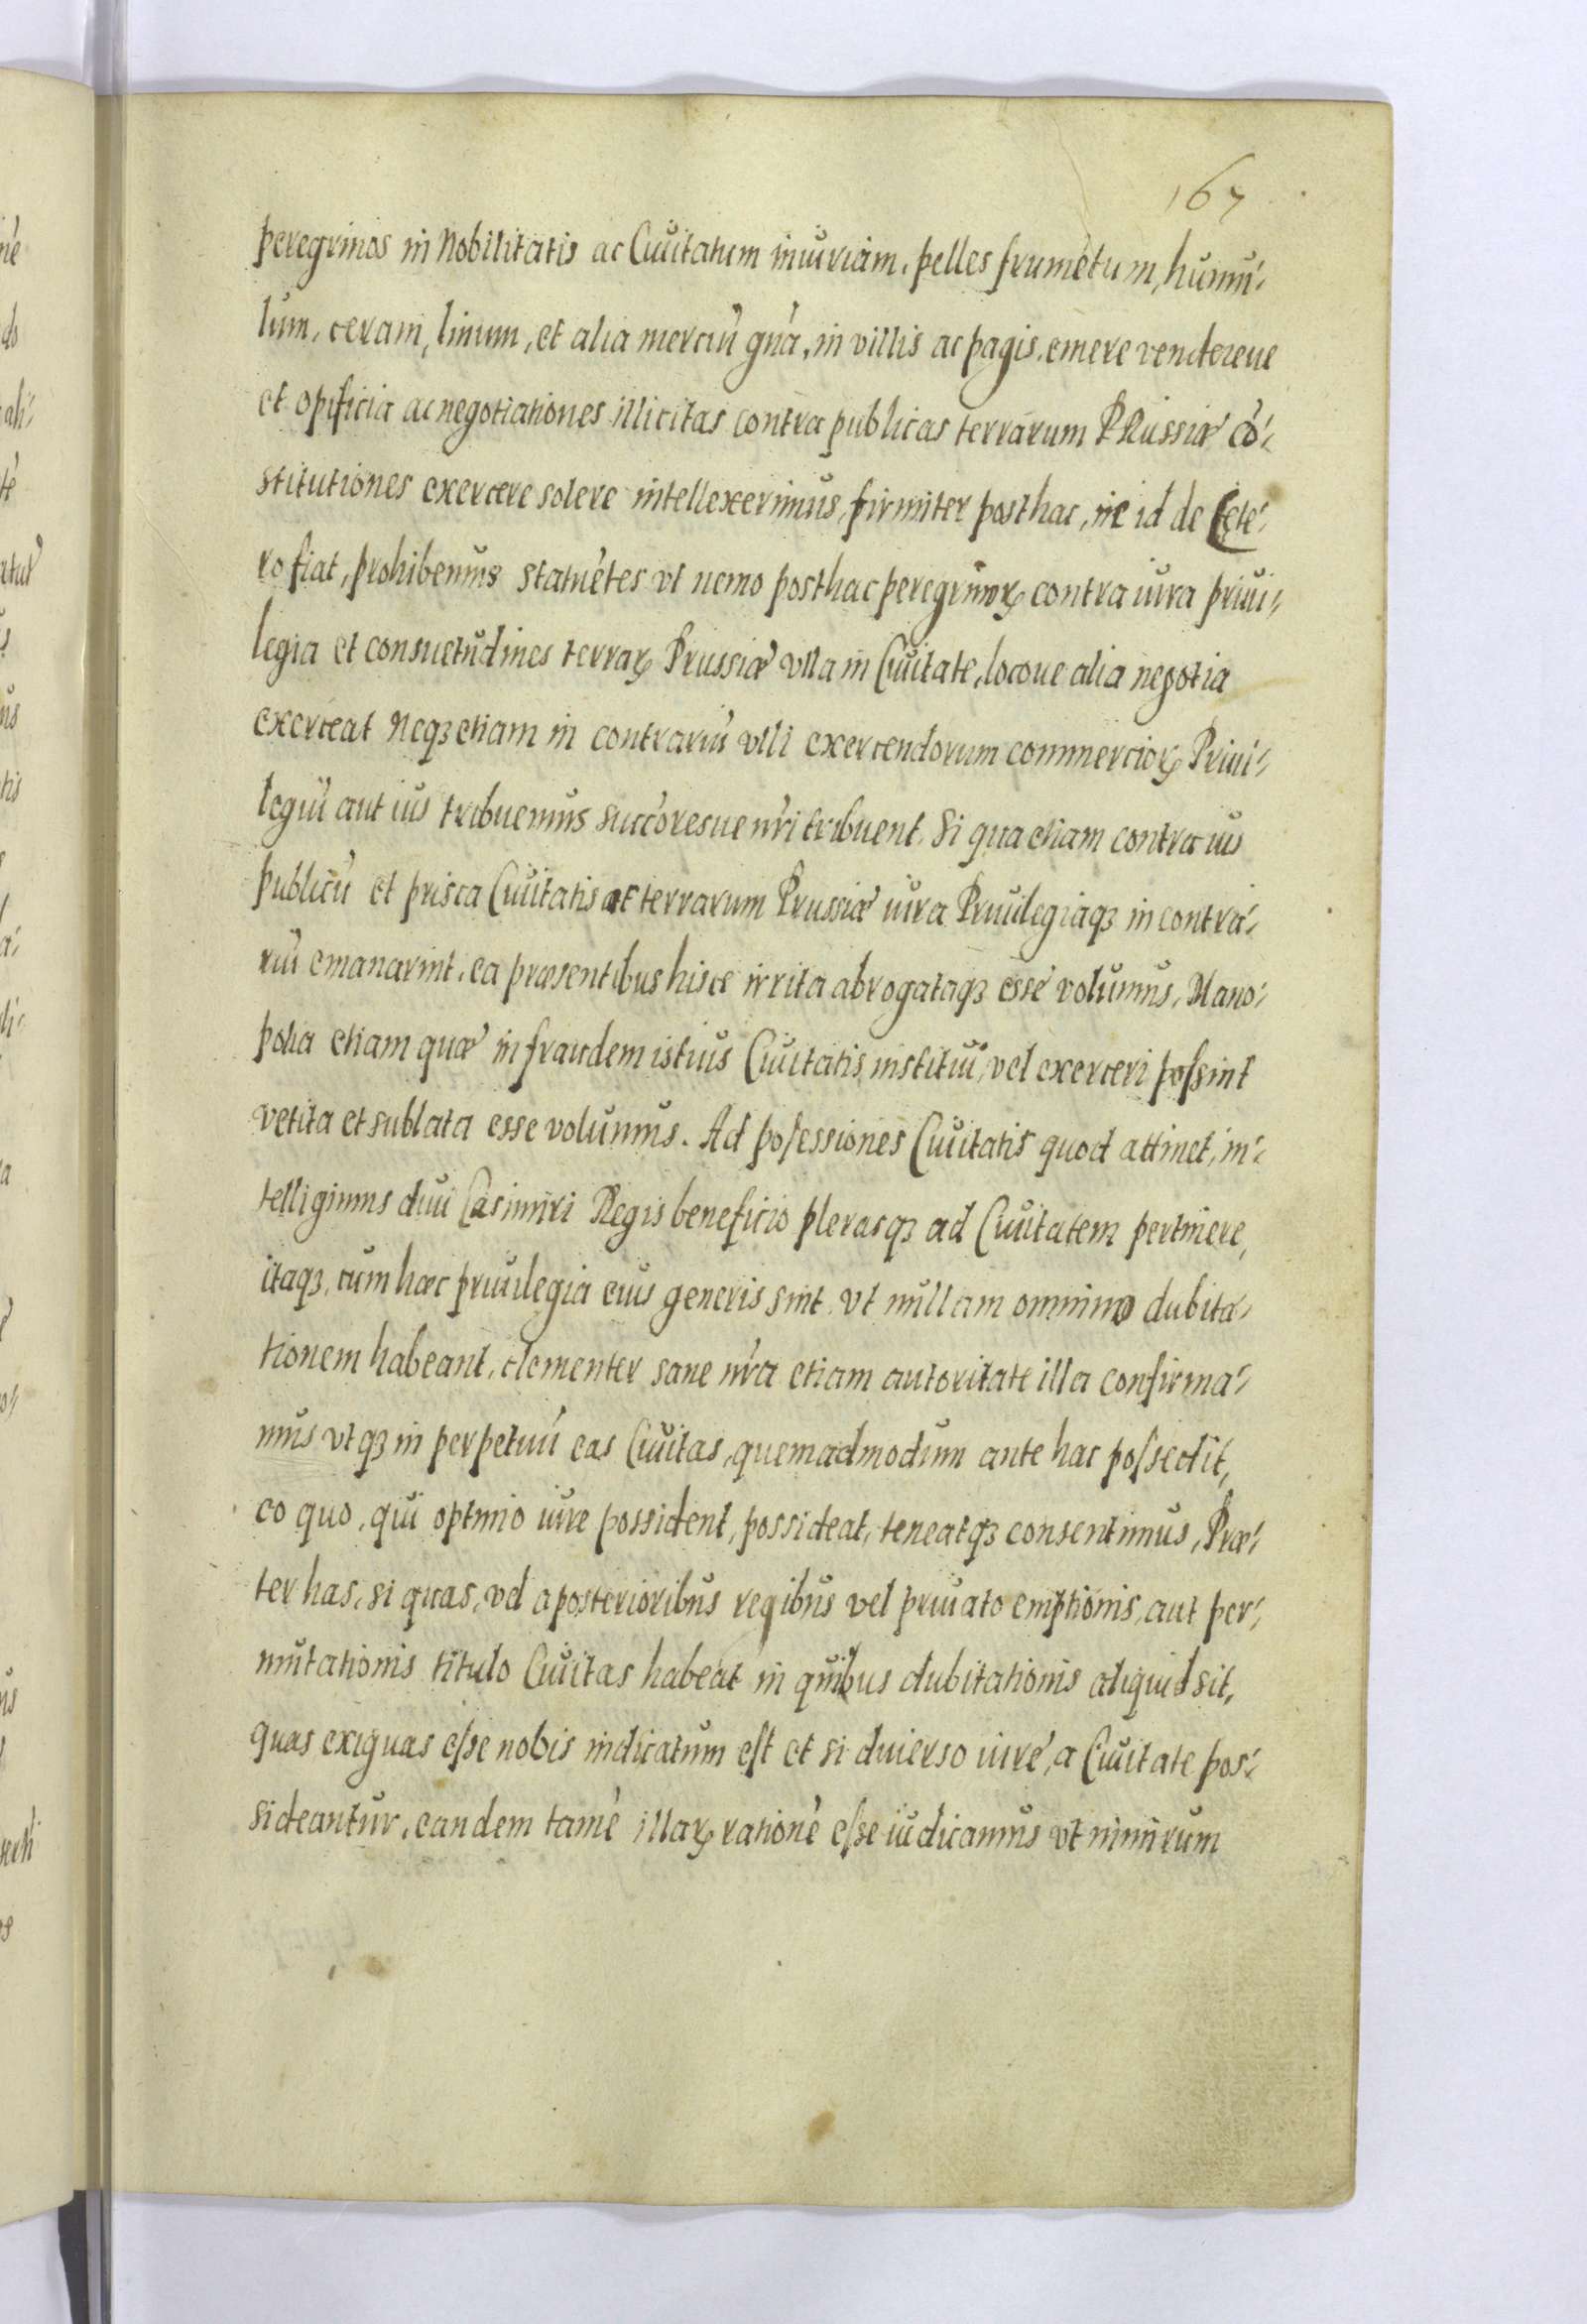 167
peregrinos in Nobilitatis ac Ciuitatum iniuriam, pelles frumētum, humu-
lum, ceram, linum, et alia merciū gn̄a, in villis ac pagis, emere vendereue
et opificia ac negotiationes illicitas contra publicas terrarum PRussiæ cō-
stitutiones exercere solere intellexerimus, firmiter posthac, ne id de Cete-
ro fiat, prohibemus statuētes vt nemo posthac peregrinorꝝ contra iura priui-
legia et consuetudines terrarꝝ Prussiæ vlla in Ciuitate, locoue alia negotia
exerceat Neqꝫ etiam in contrariū vlli exercendorum commerciorꝝ Priui-
legiū aut ius tribuemus succōresue nr̄i tribuent. Si qua etiam contra ius
publicū et prisca Ciuitatis ac terrarum Prussiæ iura Priuilegiaqꝫ in contra-
riū emanarint, ea præsentibus hisce irrita abrogataqꝫ esse volumus, Mano-
polia etiam quæ in fraudem istius Ciuitatis institui, vel exerceri poſsint
vetita et sublata esse volumus. Ad poſessiones Ciuitatis quod attinet, in-
telligimus diui Casimiri Regis beneficio plerasqꝫ ad Ciuitatem pertinere,
itaqꝫ, cum hæc priuilegia eius generis sint vt nullam omnino dubita-
tionem habeant, clementer sane nr̄a etiam autoritate illa confirma-
mus vtqꝫ in perpetuū eas Ciuitas, quemadmodum ante hac poſsedit,
eo quo, qui optimo iure possident, possideat, teneatqꝫ consentimus, Præ-
ter has, si quas, vel a posterioribus regibus vel priuato emptionis, aut per-
mutationis titulo Ciuitas habeat in quibus dubitationis aliquid sit,
quas exiguas eſse nobis indicatum eſt et si diuerso iure, a Ciuitate pos-
sideantur, eandem tamē illarꝝ rationē eſse iudicamus vt nimirum